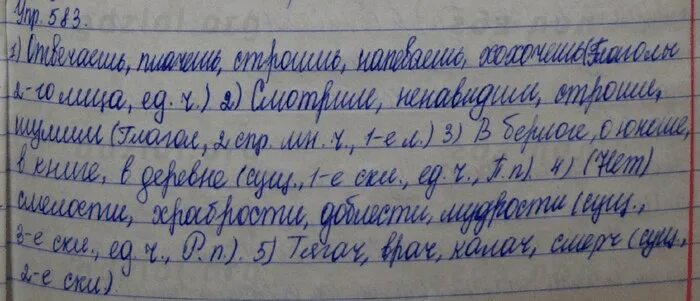 Упр. 583.
1) Отвечаешь, плачешь, строишь, напеваешь, хохочешь (Глаголы
2-го лица, ед. ч.) 2) Смотрим, ненавидим, строим,
шумим (Глагол, 2 спр. мн. ч., 1-е л.) 3) В берлоге, о юноше,
в книге, в деревне (сущ., 1-е скл., ед. ч., П. п). 4) (Нет)
смелости, храбрости, доблести, мудрости (сущ.,
3-е скл., ед. ч., Р. п.). 5) Тягач, врач, калач, смерч (сущ,
2-е скл).